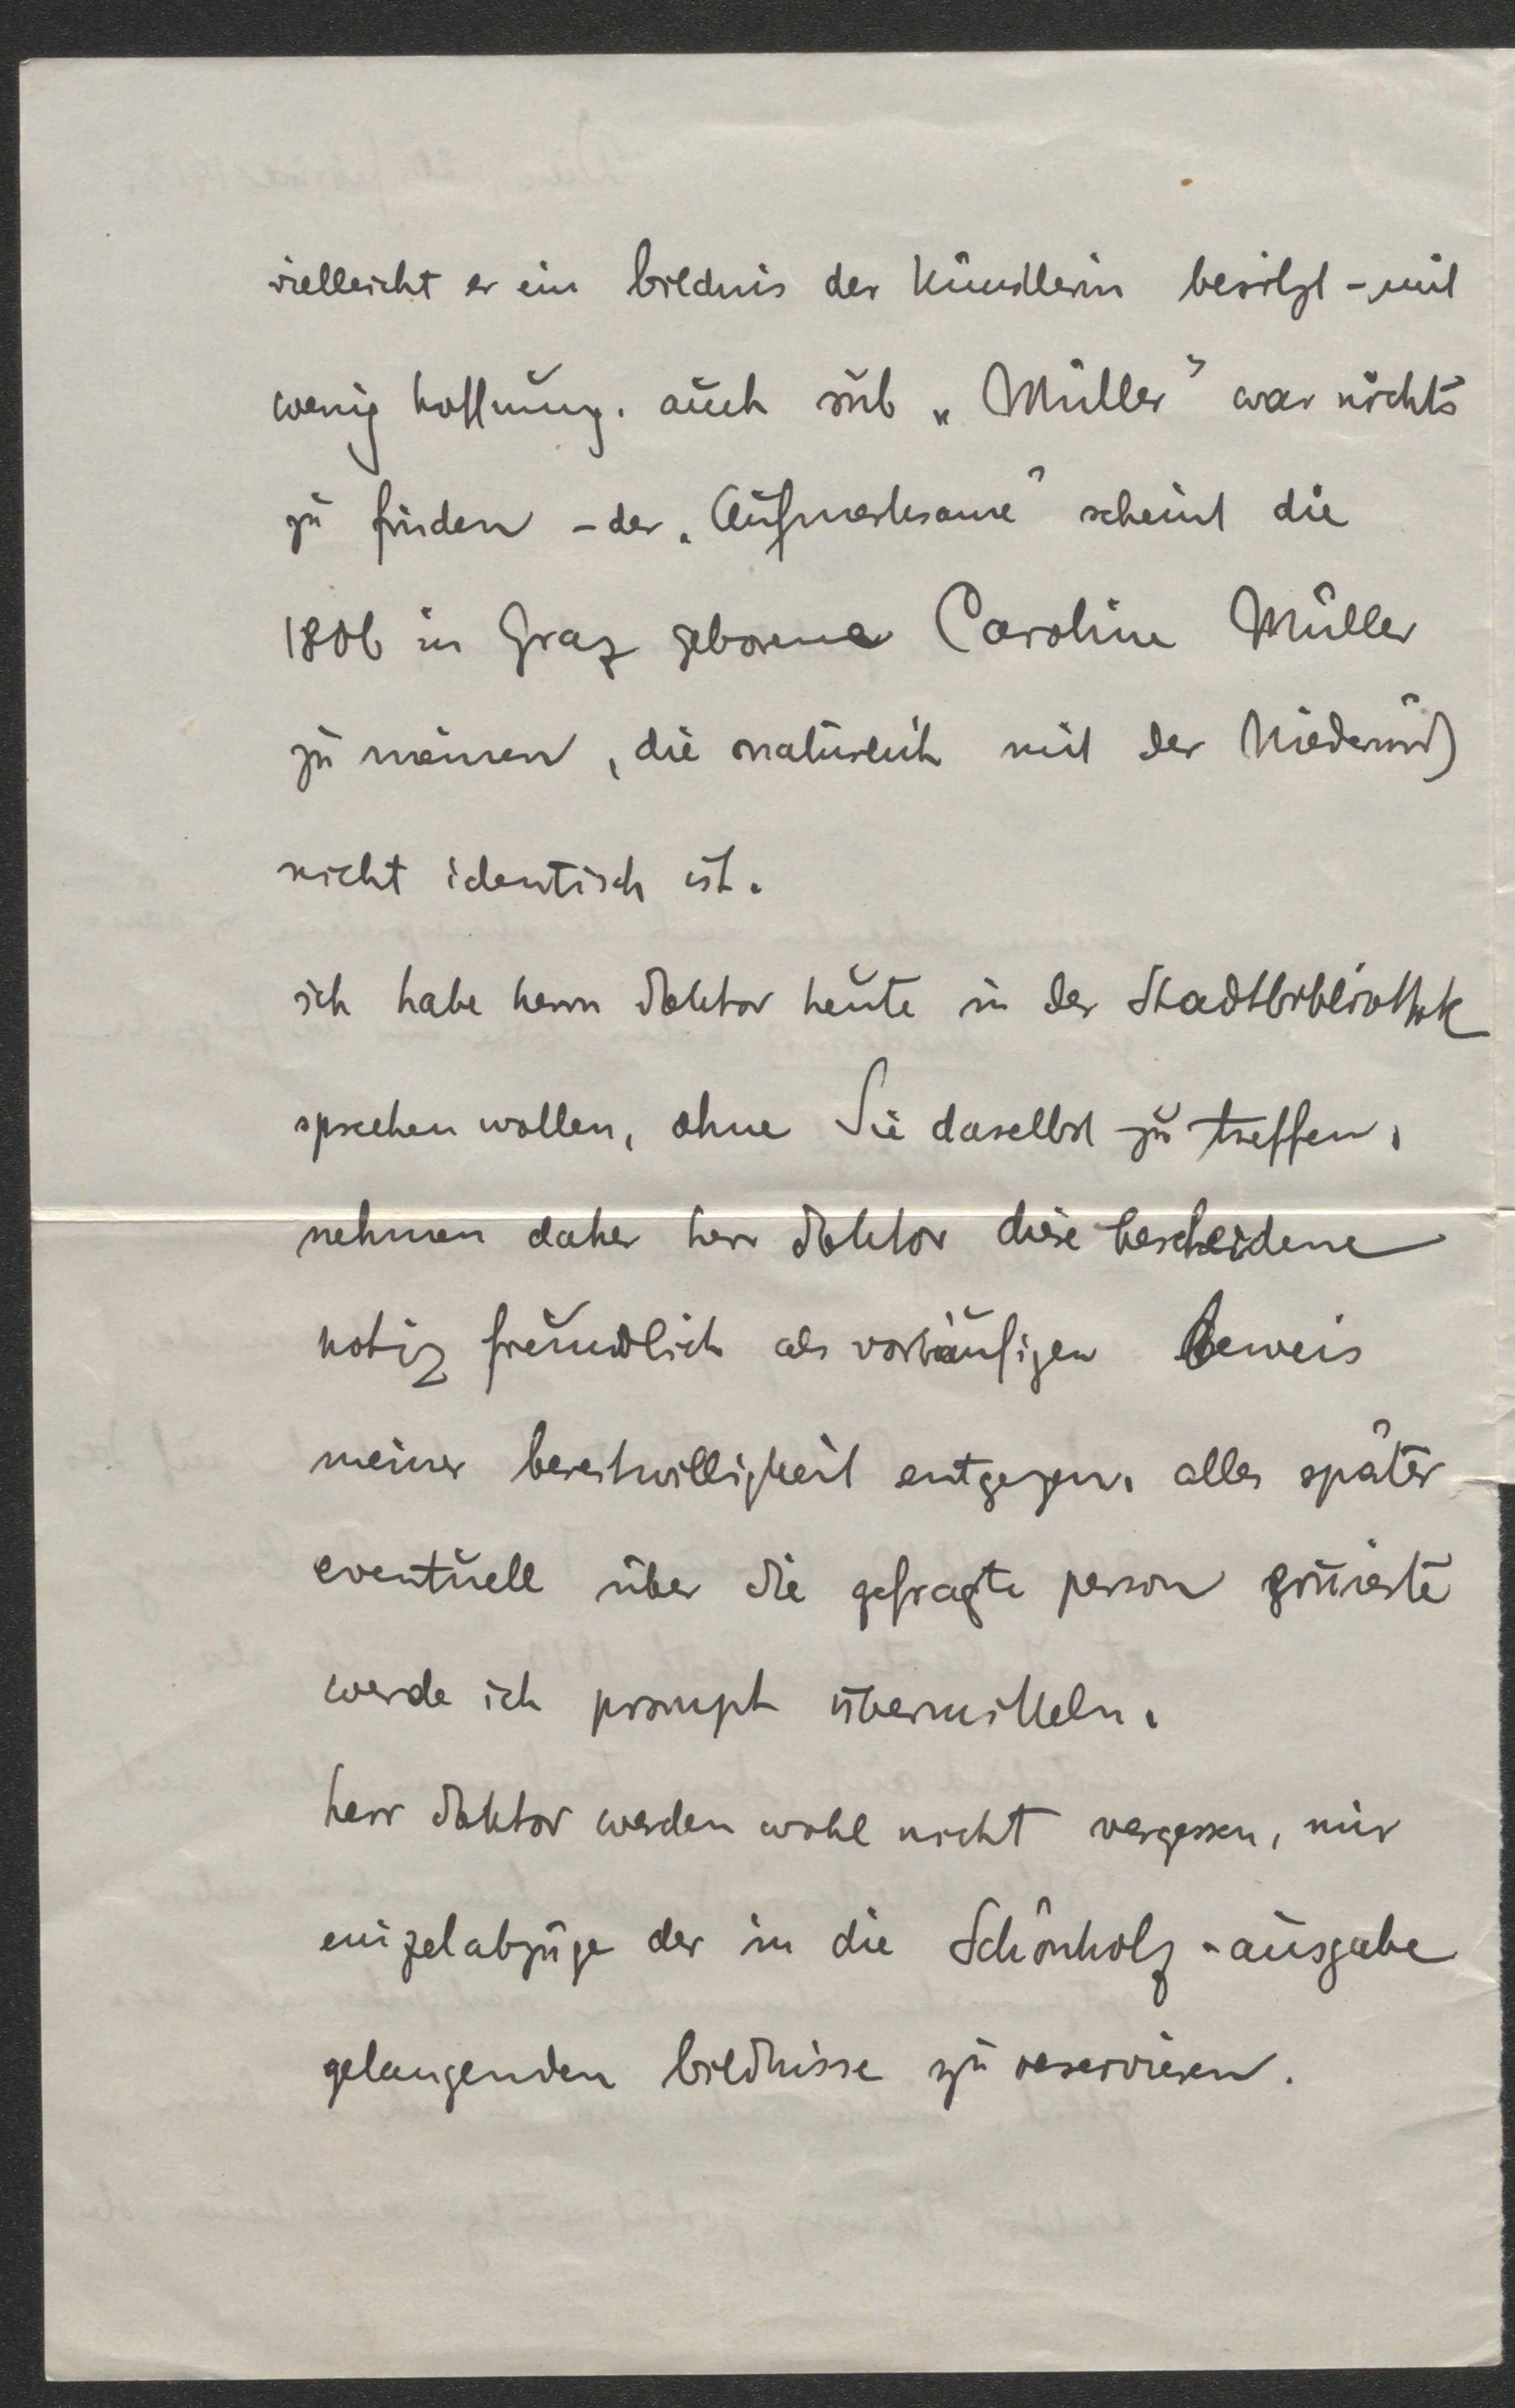 vielleicht er ein bildnis der künstlerin besitzt – mit
wenig hoffnung. auch sub „Müller" war nichts
zu finden – der „Aufmerksame" scheint die
1806 in Graz geborene Caroline Müller
zu meinen, die natürlich mit der
nicht identisch ist.
ich habe herrn doktor heute in der Stadtbibliothek
sprechen wollen, ohne Sie daselbst zu treffen,
nehmen daher herr doktor diese bescheidene
notiz freundlich als vorläufigen beweis
meiner bereitwilligkeit entgegen. alles später
eventuell über die gefragte person eruierte
werde ich prompt übermitteln.
herr doktor werden wohl nicht vergessen, mir
einzelabzüge der in die Schönholz-ausgabe
gelangenden bildnisse zu reservieren.